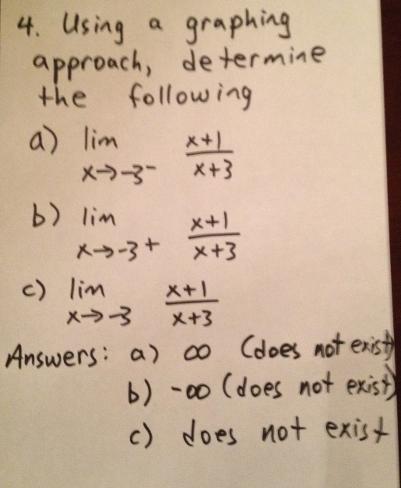 4. Using a graphing
approach, determine
the following
a) lim x+1
x→-3⁻ x+3
b) lim x+1
x→-3+ x+3
c) lim x+1
x→-3 x+3
Answers: a) ∞ (does not exist)
b) -∞ (does not exist)
c) does not exist